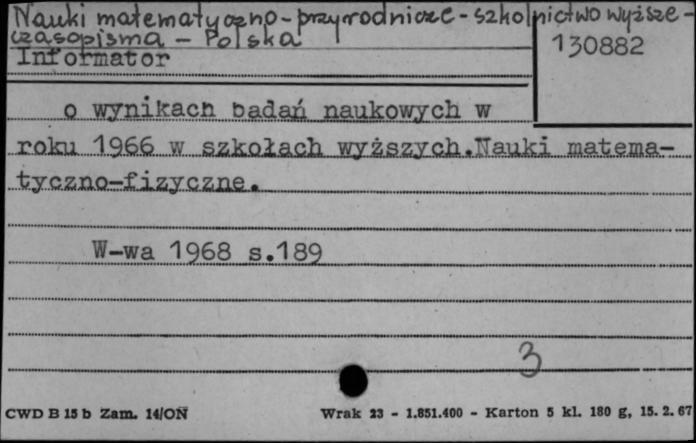 Nauki matematyczno-przyrodnicze-szkolnictwo wyższe-
czasopisma - Polska
130882
Informator
o wynikach badań naukowych w
roku 1966 w szkołach wyższych.Nauki matema-
tyczno-fizyczne.
W-wa 1968 s.189
3
CWD B 15 b Zam. 14/ON Wrak 23 - 1.851.400 - Karton 5 kl. 180 g, 15. 2. 67